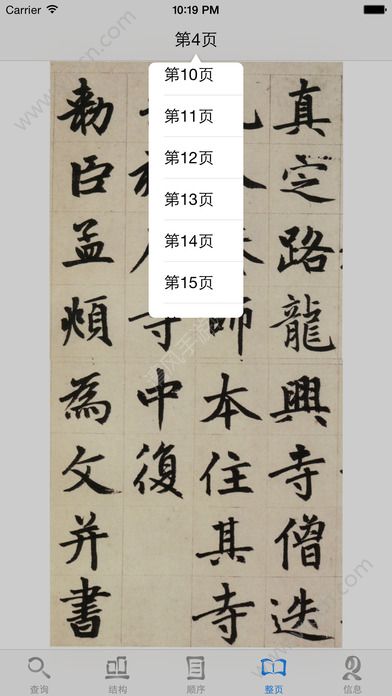 Carrier 10:19 PM
第4页
第10页
第11页
第12页
第13页
第14页
第15页
真定路龍興寺僧迭
師本住其寺
寺中復
勑臣孟頫為文并書
查询
结构
顺序
整页
信息